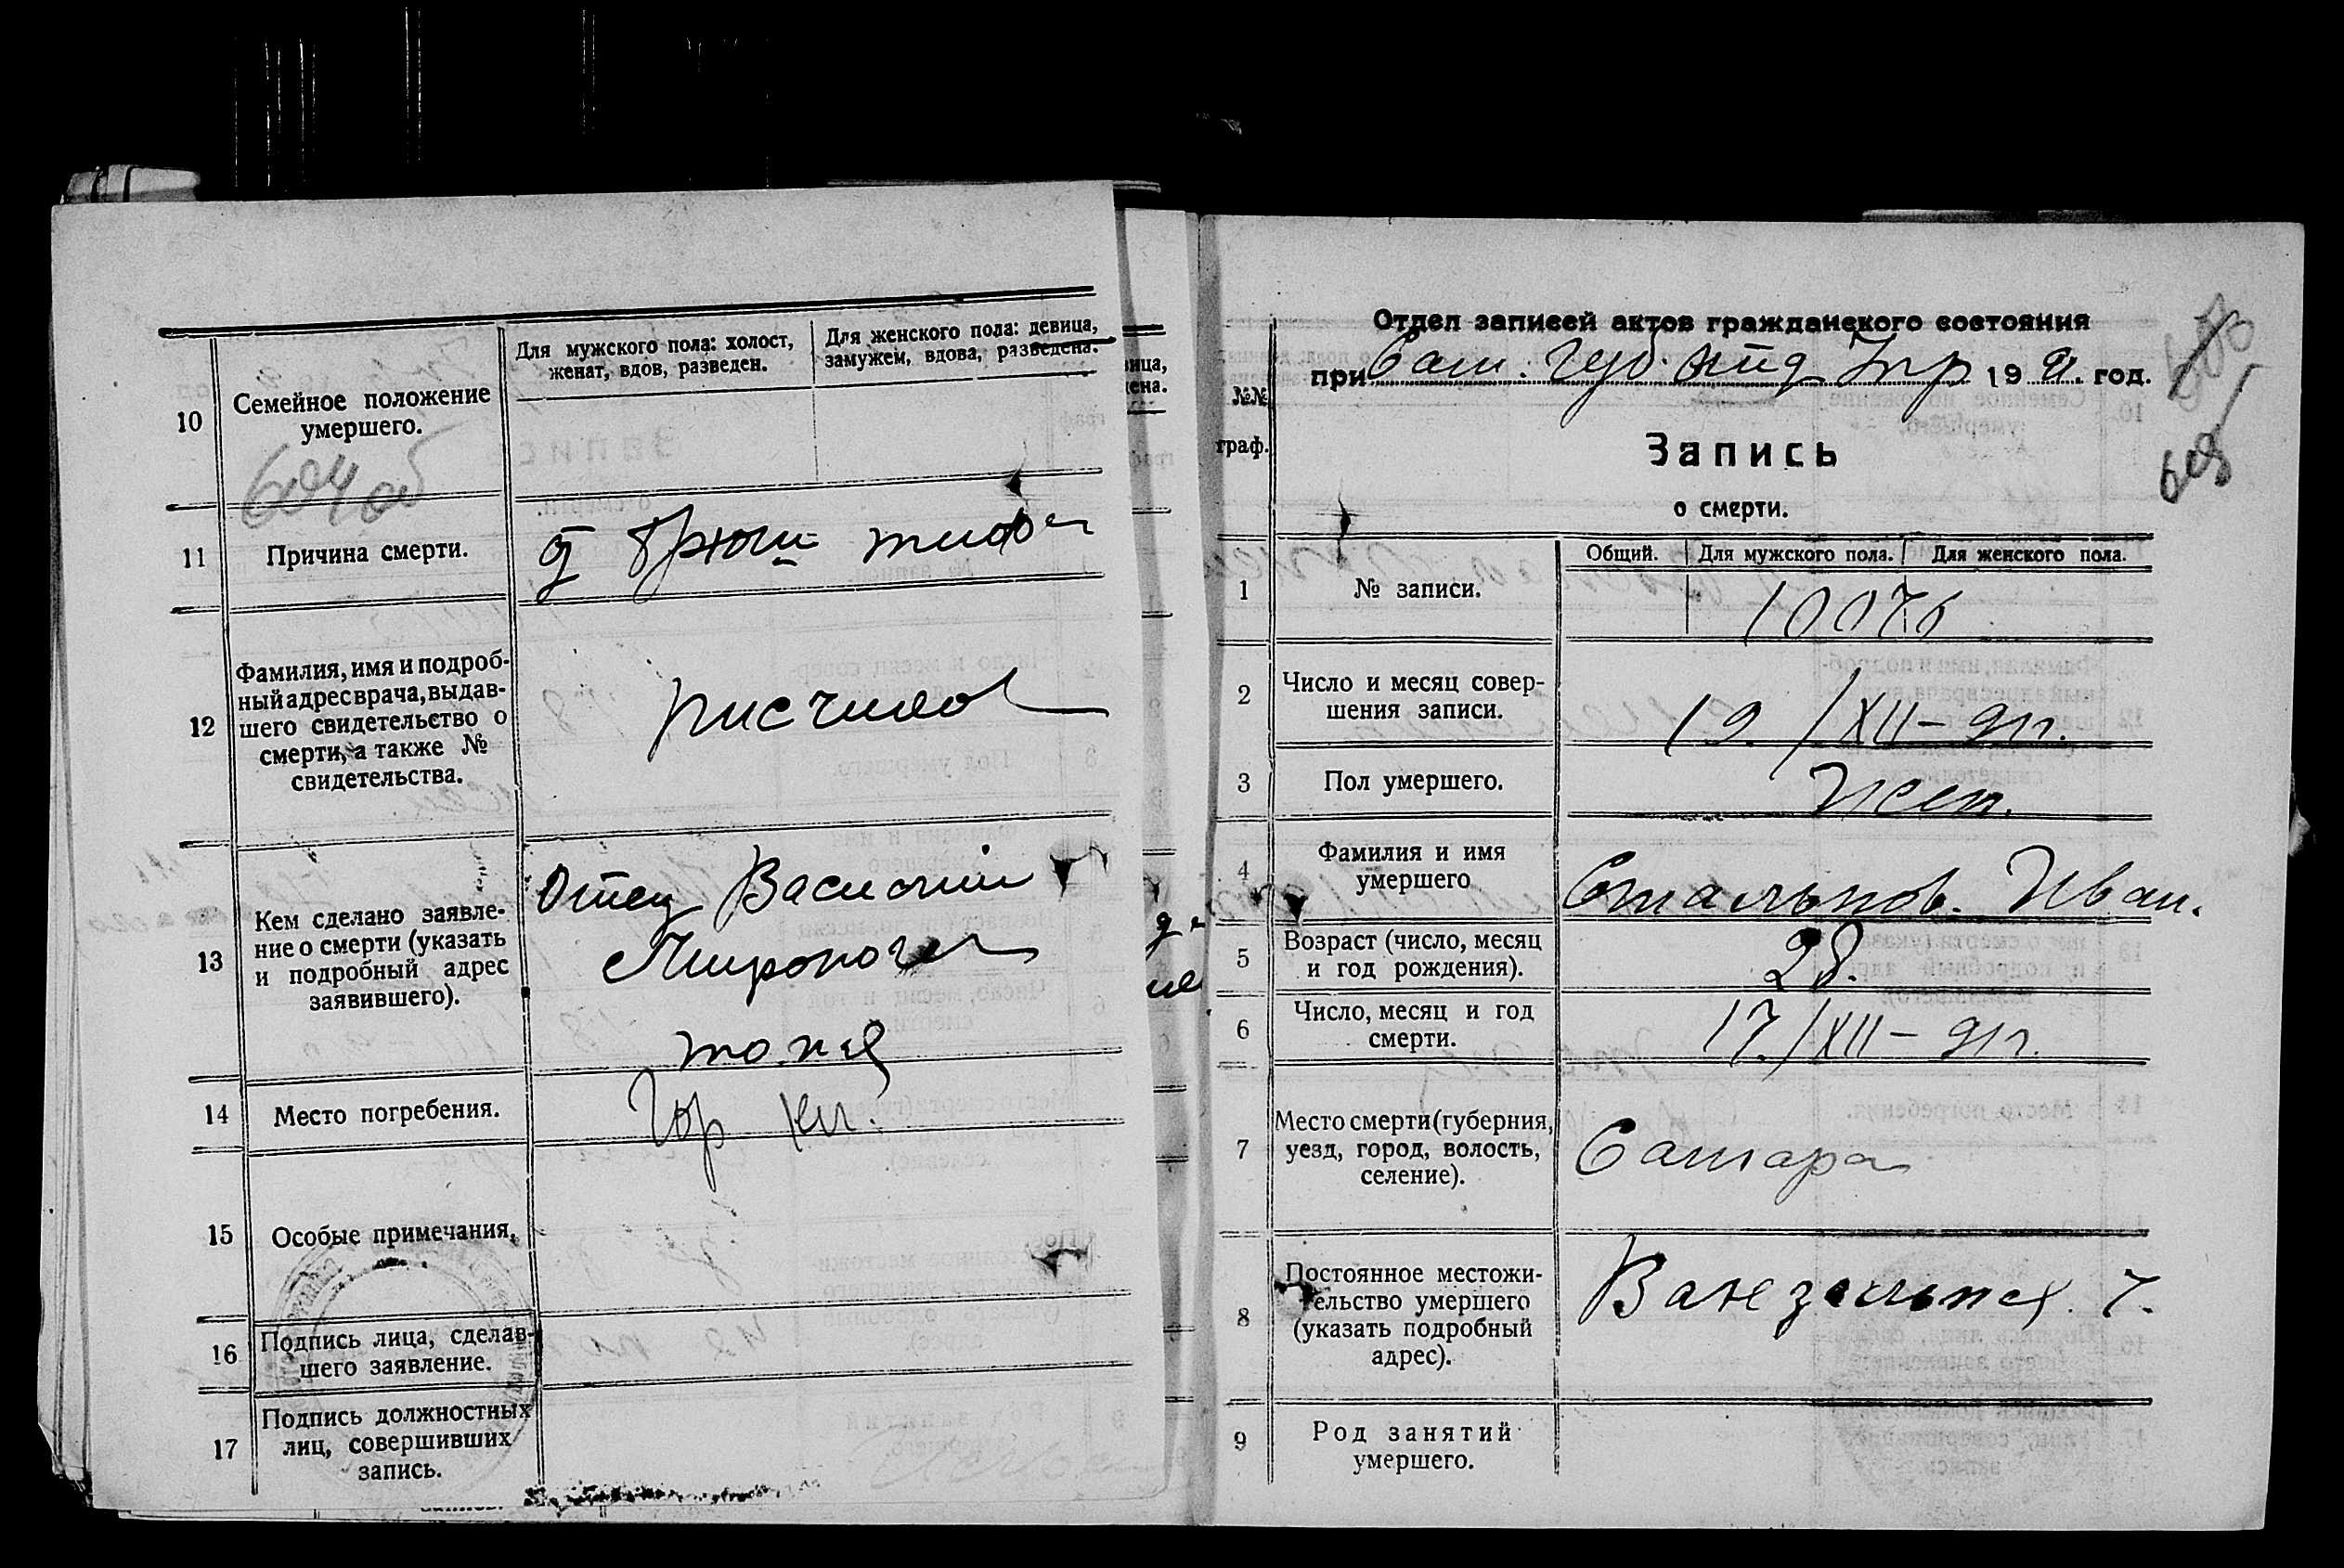 10
Семейное положение
умершего.
Для мужского пола: холост,
женат, вдов, разведен.
Для женского пола: девица,
замужем, вдова, разведена.
604 об
11
Причина смерти.
от брюш тифа
12
Фамилия, имя и подроб-
ный адрес врача, выдав-
шего свидетельство о
смерти, а также №
свидетельства.
13
Кем сделано заявле-
ние о смерти (указать
и подробный адрес
заявившего).
Отец Василий
14
Место погребения.
Гор кл.
15
Особые примечания.
16
Подпись лица, сделав-
шего заявление.
17
Подпись должностных
лиц, совершивших
запись.
ица,
ена.
Отдел записей актов гражданского состояния
при Сам. Губ. 19 год.
605
№№
граф.
Запись
о смерти.
1
№ записи.
Общий.
Для мужского пола.
Для женского пола.
10076
2
Число и месяц совер-
шения записи.
19. / XII –
3
Пол умершего.
4
Фамилия и имя
умершего
Стальнов. Иван.
5
Возраст (число, месяц
и год рождения).
28.
6
Число, месяц и год
смерти.
17. / XII –
7
Место смерти (губерния,
уезд, город, волость,
селение).
Самара
8
Постоянное местожи-
тельство умершего
(указать подробный
адрес).
7.
9
Род занятий
умершего.